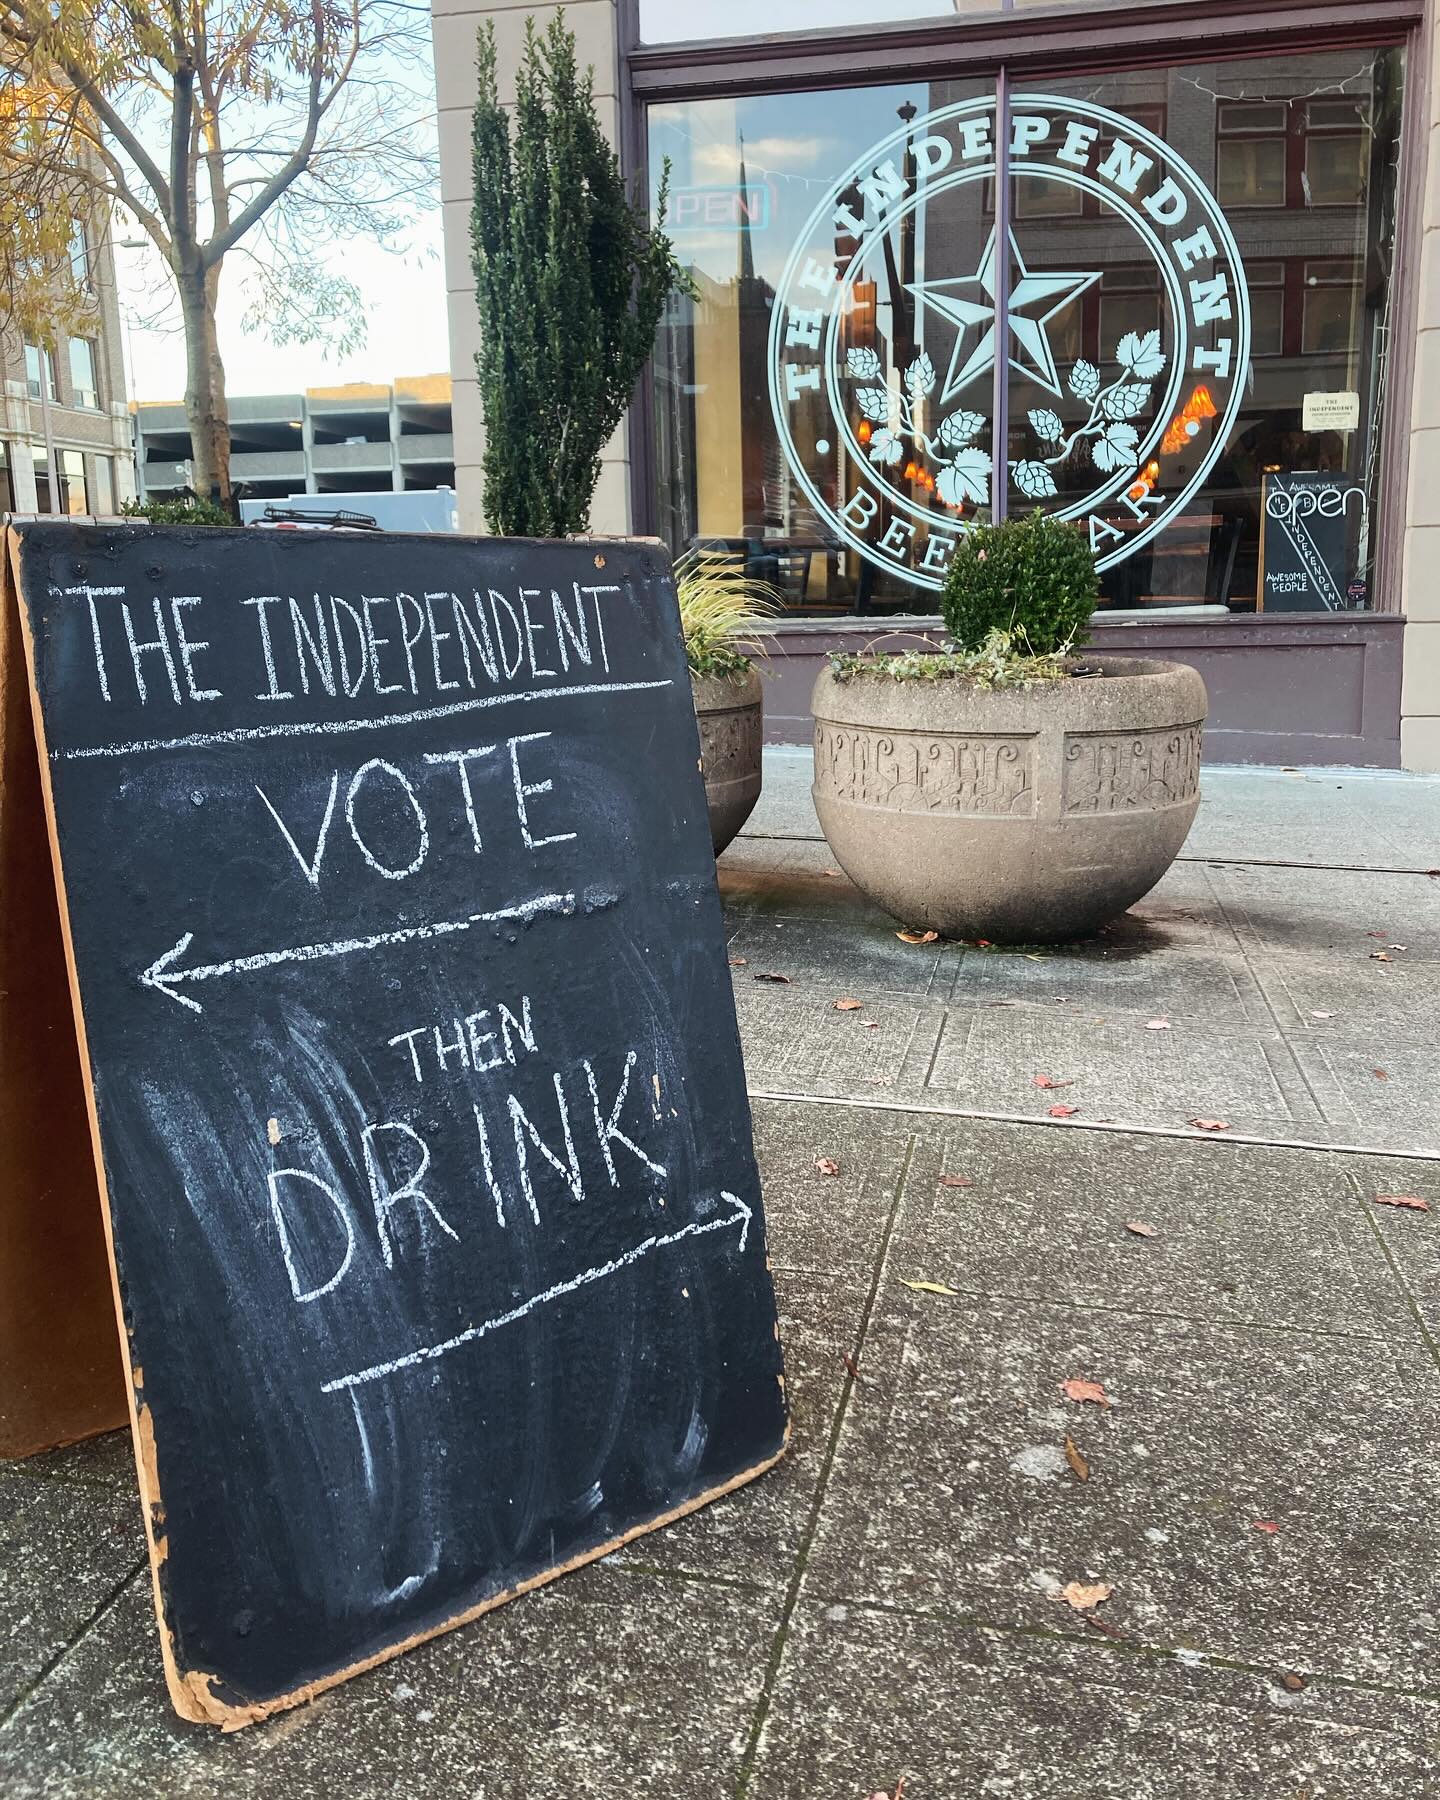 THE INDEPENDENT
VOTE
THEN
DRINK
THE INDEPENDENT
BEER BAR
OPEN
THE
INDEPENDENT
open
AWESOME
THE INDEPENDENT
AWESOME
PEOPLE